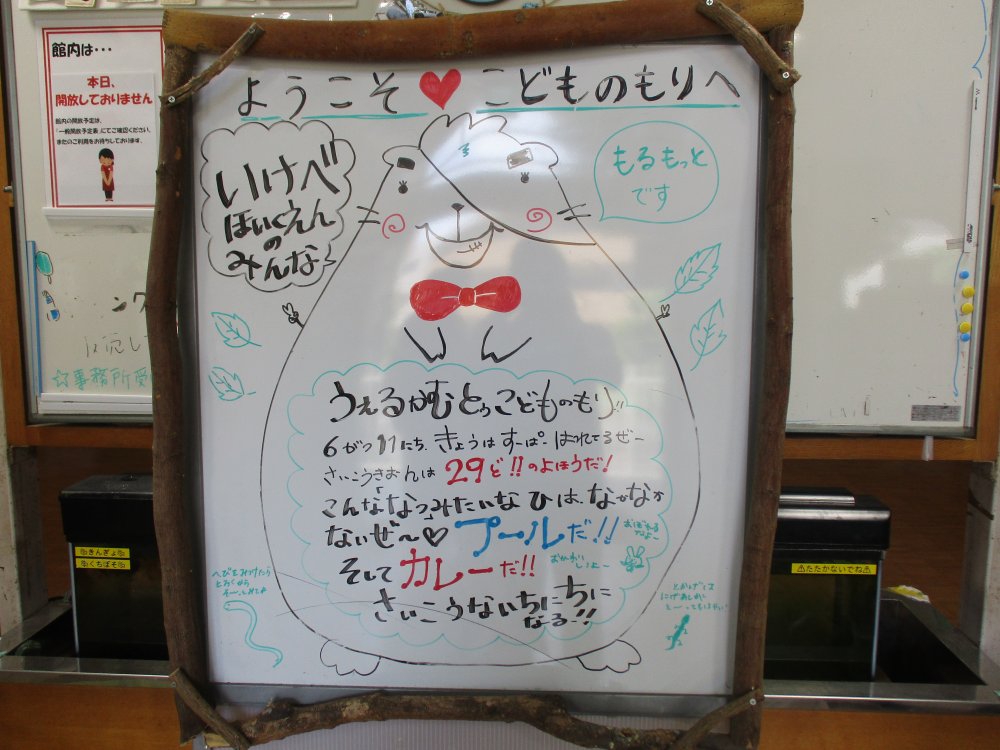 館内は・・・
本日、
開放しておりません
館内の開放予定は、
「一般開放予定表」にてご確認ください。
またのご利用をお待ちしております。
ようこそ♥こどものもりへ
いけべ
ほいくえん
の
みんな
もるもっと
です
うぇるかむとぅこどものもり!!
6がつ11にち、きょうはすーぱーはれてるぜー
さいこうきおんは29ど!!のよほうだ!
こんな「なつ」みたいなひは、なかなか
ないぜ〜♡プールだ!!
おぼれる
なよ〜
そしてカレーだ!!
おかわり
しよー
さいこうないちにちに
なる!!
へびをみつけたら
とおくから
そーっとみてね
とかげは
にげあしが
とーってもはやい
☆事務所受
きんぎょ
くちぼそ
⚠たたかないでね⚠